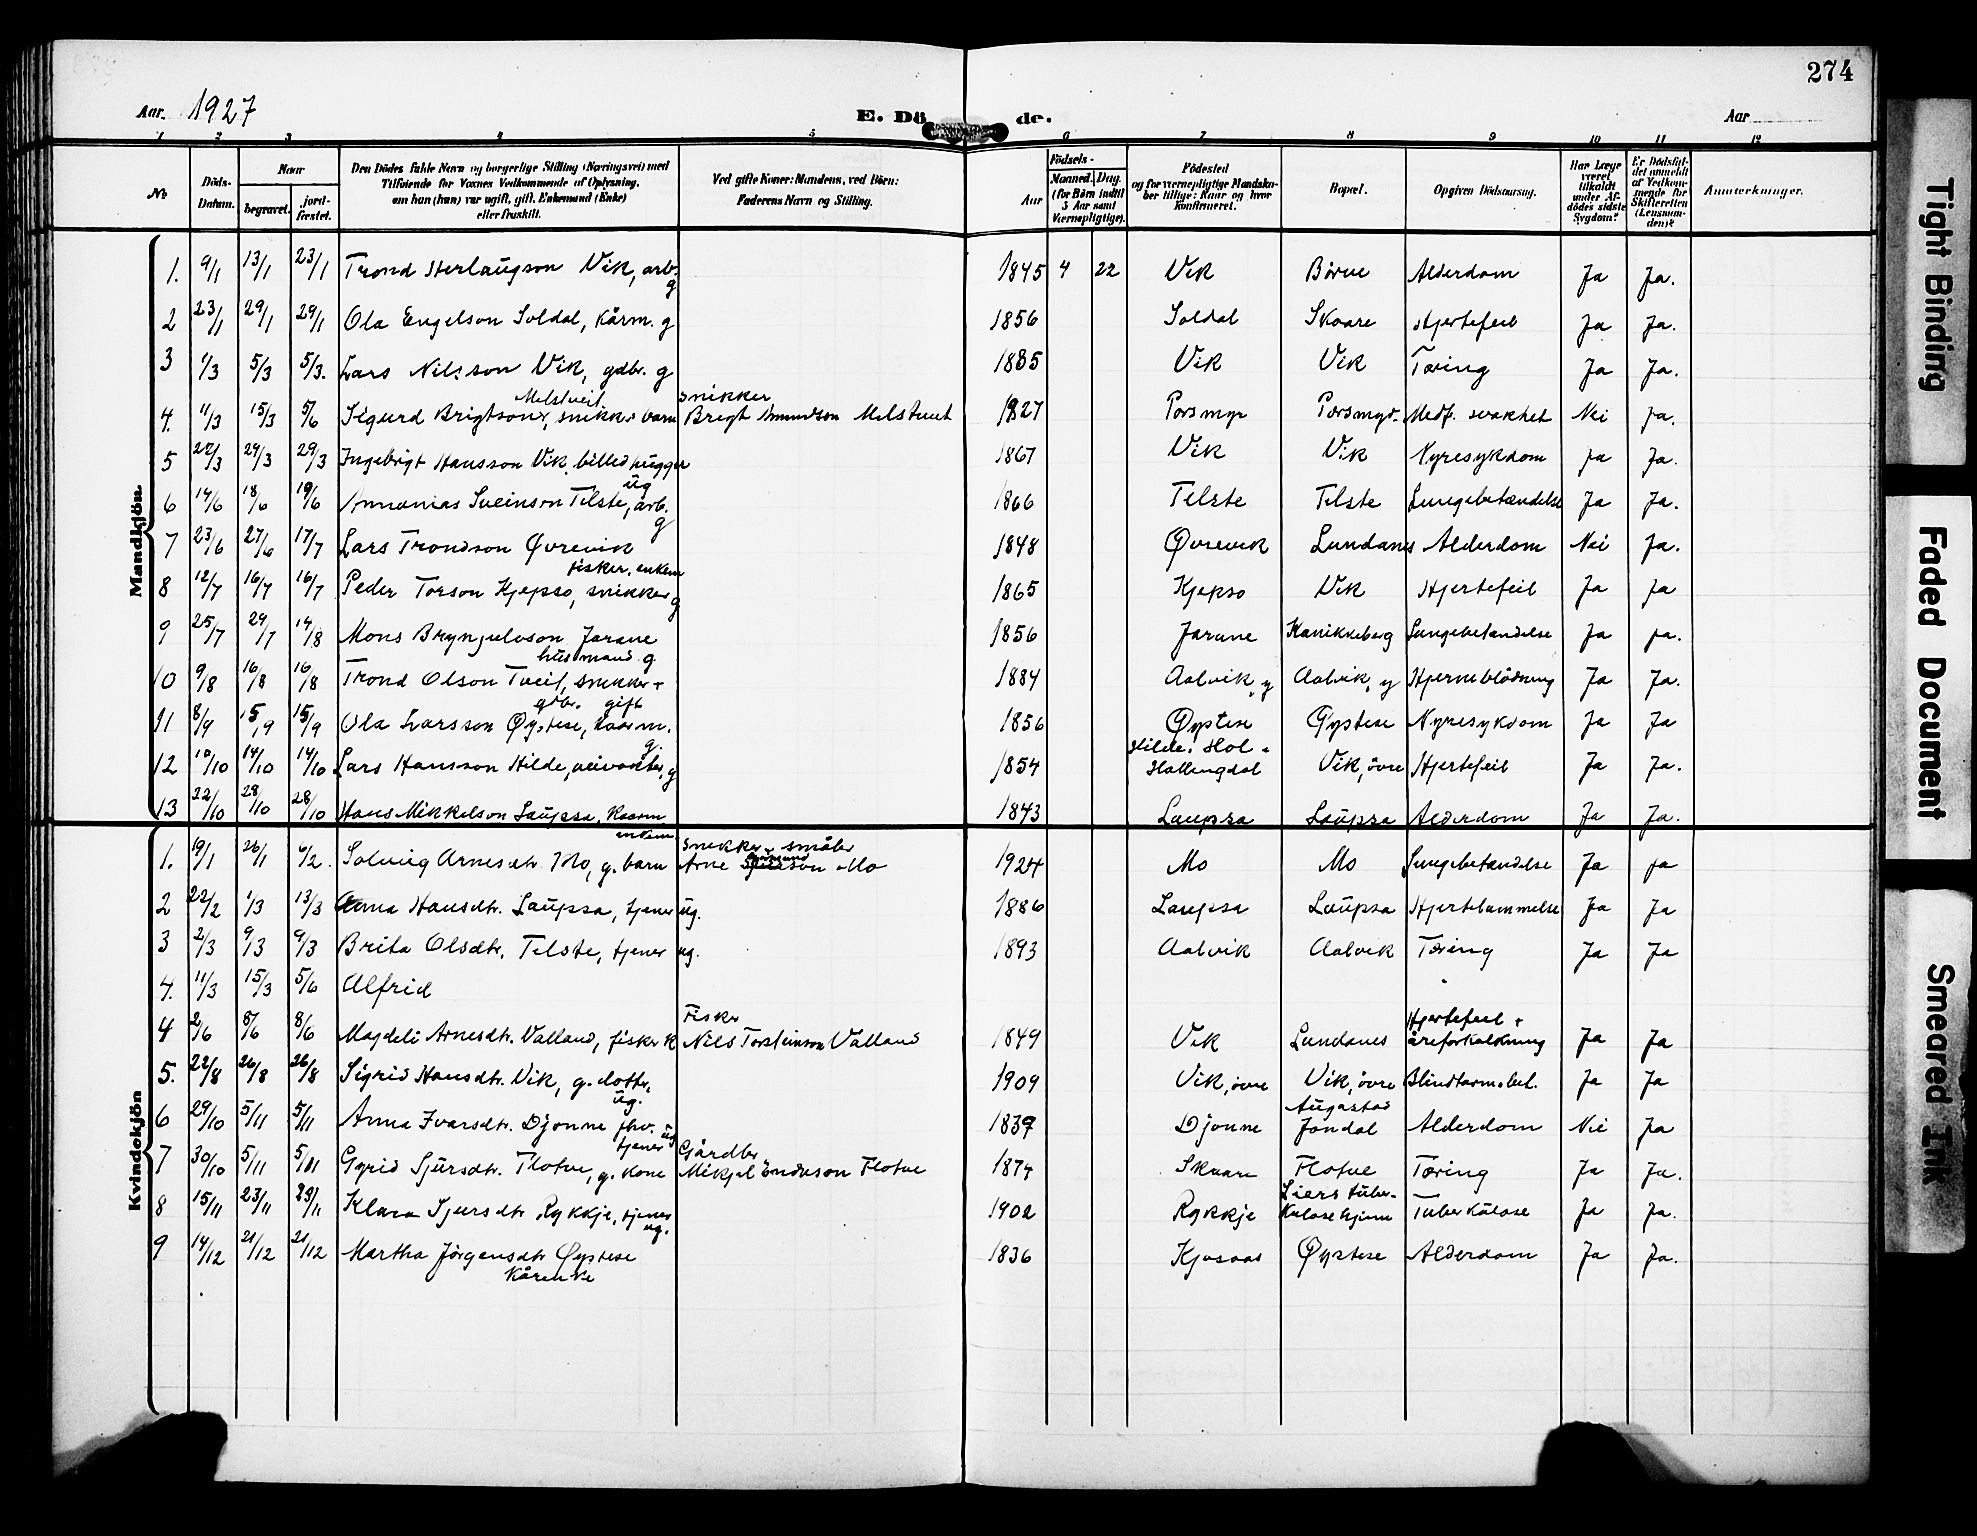 274
Aar. 1927
E. Dö de.
Aar
1 2 3 4 5 6 7 8 9 10 11 12
No
Döds-Datum.
Naar
begravet.
jord-fæstet.
Den Dödes fulde Navn og borgerlige Stilling (Næringsvei) med
Tilföiende for Voxnes Vedkommende af Oplysning,
om han (hun) var ugift, gift, Enkemand (Enke)
eller fraskilt.
Ved gifte Koner: Mandens, ved Börn:
Faderens Navn og Stilling.
Födsels-
Aar
Maaned. Dag.
(for Börn indtil
3 Aar samt
Værnepligtige).
Födested
og for værnepligtige Mandska-
ber tillige: Naar og hvor
Konfirmeret.
Bopæl.
Opgiven Dödsaarsag.
Har Læge
været
tilkaldt
under Af-
dödes sidste
Sygdom?
Er Dödsfal-
det anmeldt
af Vedkom-
mende for
Skifteretten
(Lensman-
den)?
Anmærkninger.
Mandkjön.
1. 9/1 13/1 23/1 Trond Herlaugson Vik, arb. g 1845 4 22 Vik Börve Alderdom Ja Ja.
2 23/1 29/1 29/1 Ola Engelson Soldal, kårm. g 1856 Soldal Skaare Hjertefeil Ja Ja.
3 1/3 5/3 5/3. Lars Nilsson Vik, gdbr. g 1885 Vik Vik Tæring Ja Ja.
Melstveit snikker
4. 11/3 15/3 5/6 Sigurd Brigtson, snikker barn Brigt Amundson Melstveit 1927 Porsmyr Porsmyr Medf. svakhet Nei Ja.
5 22/3 29/3 29/3 Ingebrigt Hansson Vik, billedhugger ug 1867 Vik Vik Nyresykdom Ja Ja.
6 14/6 18/6 19/6 Annanias Sveinson Telste, arb. g 1866 Telste Telste Lungebetændelse Ja Ja.
7 23/6 27/6 17/7 Lars Trondson Øvrevik 1848 Øvrevik Lundanes Alderdom Nei Ja.
fisker, enkem
8 12/7 16/7 16/7 Peder Torson Kjepso, snikker g 1865 Kjepso Vik Hjertefeil Ja Ja
9 25/7 29/7 14/8 Mons Brynjulvson Jarane 1856 Jarane Kanikkeberg Lungebetændelse Ja Ja.
husmand g.
10 9/8 16/8 16/8 Trond Olson Tveit, snikker + 1884 Aalvik, y Aalvik, y Hjerneblödning Ja Ja.
gbr. gift
11 8/9 15/9 15/9 Ola Larsson Øystese, kaarm. g. 1856 Øystese Øystese Nyresykdom Ja Ja
Hilde, Hol -
12 10/10 14/10 14/10 Lars Hansson Hilde, veivokter, g 1854 Hallingdal Vik, övre Hjertefeil Ja Ja.
13 22/10 28/10 28/10 Hans Mikkelson Laupsa, kaarm 1843 Laupsa Laupsa Alderdom Ja Ja.
enkem
Kvindekjön
snikker + småbr
1. 19/1 26/1 6/2. Solveig Arnesdtr. Mo, g. barn Arne Mo 1924 Mo Mo Lungebetændelse Ja Ja
2 22/2 1/3 13/3 Anna Hansdtr. Laupsa, tjener ug. 1886 Laupsa Laupsa Hjertelammelse Ja Ja
3 2/3 9/3 9/3 Brita Olsdtr. Telste, tjener ug. 1893 Aalvik Aalvik Tæring Ja Ja
4. 11/3 15/3 5/6 Alfrid
Fisker Hjertefeil +
4 2/6 8/6 8/6 Magdeli Arnesdtr. Valland, fisker k Nils Torsteinson Valland 1849 Vik Lundanes åreforkalkning Ja Ja
5. 22/8 26/8 26/8 Sigrid Hansdtr. Vik, g. dotter, ug. 1909 Vik, övre Vik, övre Blindtarmsbet. Ja Ja
Augastad
6 29/10 5/11 5/11 Anna Ivarsdtr. Djönne fhv. tjener ug 1839 Djönne Jondal Alderdom Nei Ja
Gårdbr
7 30/10 5/11 5/11 Gyrid Sjursdtr. Flotve, g. kone Mikjel Endreson Flotve 1874 Skaare Flotve Tæring Ja Ja.
Liers tuber-
8 15/11 23/11 23/11 Klara Sjursdtr Rykkje, tjener ug. 1902 Rykkje kulosehjem Tuberkulose Ja Ja.
9 14/12 21/12 21/12 Martha Jörgensdtr Øystese 1836 Kjosaas Øystese Alderdom Ja Ja.
Kårenke
Tight Binding
Faded Document
Smeared Ink